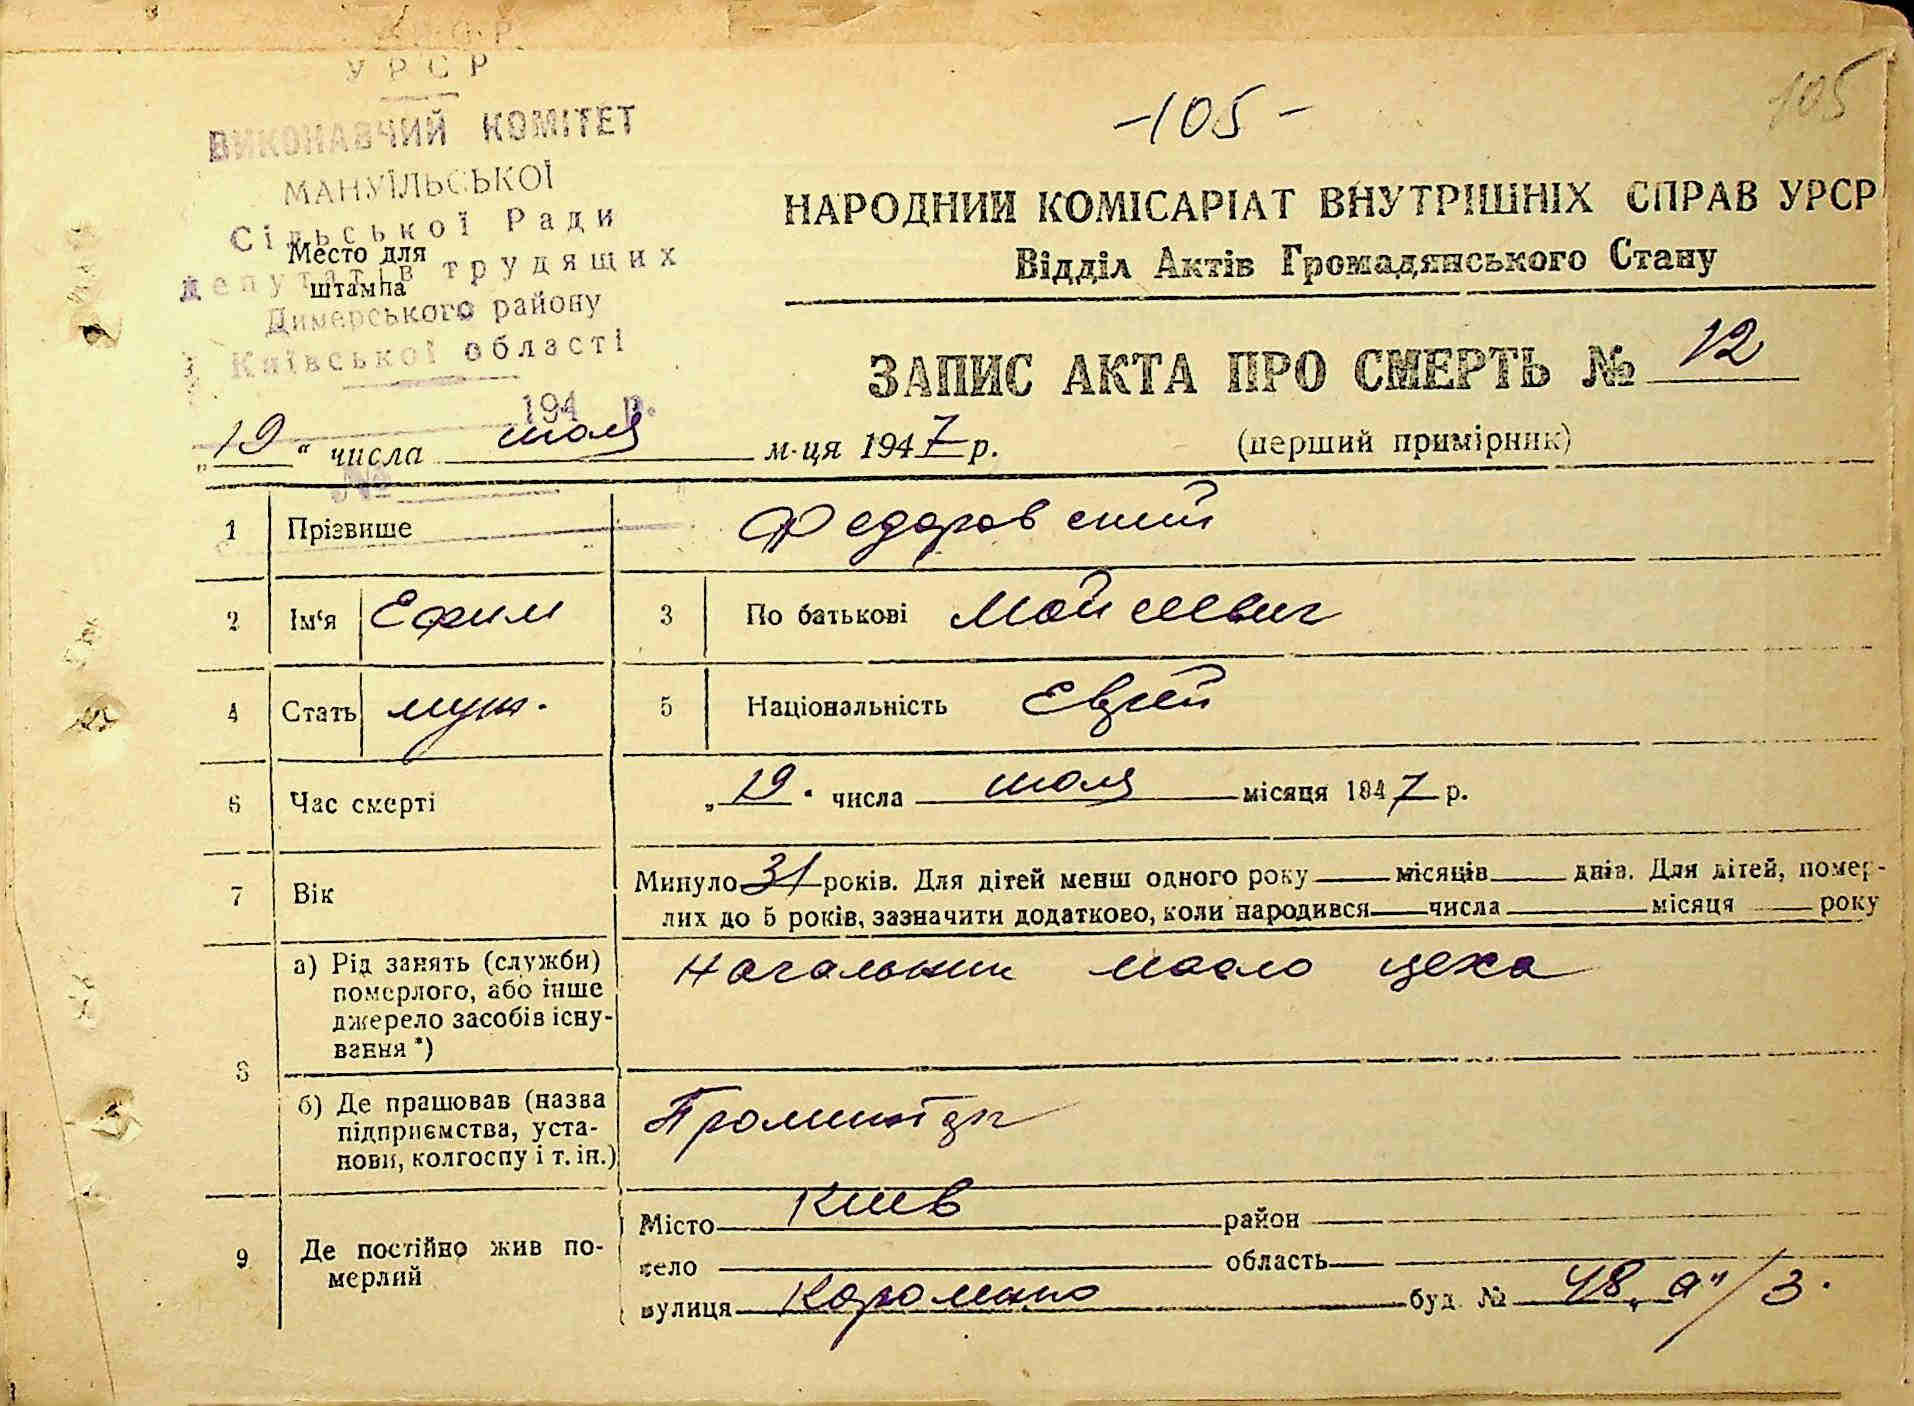 УРСР
ВИКОНАВЧИЙ КОМІТЕТ
МАНУЇЛЬСЬКОЇ
Сільської Ради
депутатів трудящих
Димерського району
Київської області
194 р.
№
Место для
штампа
-105-
105
НАРОДНИЙ КОМІСАРІАТ ВНУТРІШНІХ СПРАВ УРСР
Відділ Актів Громадянського Стану
ЗАПИС АКТА ПРО СМЕРТЬ № 12
„19“ числа июля м-ця 1947 р. (перший примірник)
1 Прізвище Федоровский
2 Ім‘я Ефим 3 По батькові Мойсеевич
4 Стать муж. 5 Національність Еврей
6 Час смерті „19“ числа июля місяця 1947 р.
7 Вік Минуло 31 років. Для дітей менш одного року місяців днів. Для дітей, помер-
лих до 5 років, зазначити додатково, коли народився числа місяця року
8 а) Рід занять (служби) Начальник масло цеха
померлого, або інше
джерело засобів існу-
вання *)
б) Де працював (назва
підприємства, уста-
нови, колгоспу і т. ін.)
9 Де постійно жив по-
мерлий
Місто Киев район
село область
вулиця буд. № 48 „а"/3.